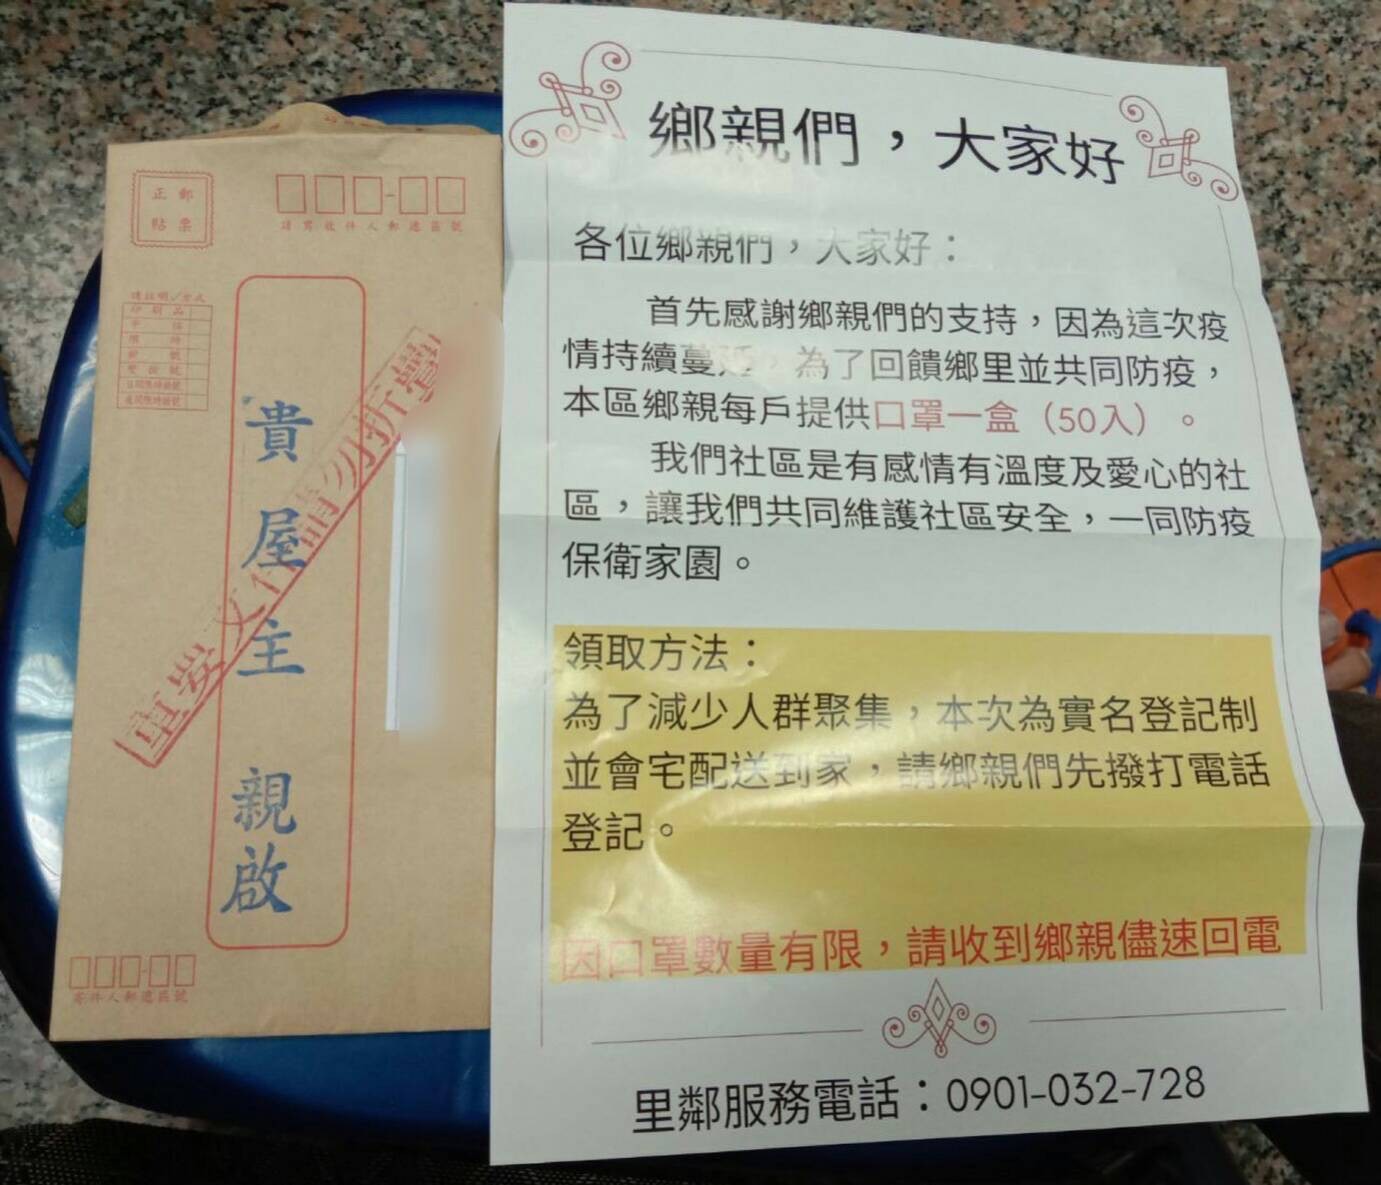 正郵
帖票
請寫收件人郵遞區號
請註明✓方式
印刷品
平信
限時
掛號
雙掛號
貴屋主 親啟
重要文件請勿折疊
寄件人郵遞區號
鄉親們，大家好
各位鄉親們，大家好：
首先感謝鄉親們的支持，因為這次疫
情持續蔓延，為了回饋鄉里並共同防疫，
本區鄉親每戶提供口罩一盒（50入）。
我們社區是有感情有溫度及愛心的社
區，讓我們共同維護社區安全，一同防疫
保衛家園。
領取方法：
為了減少人群聚集，本次為實名登記制
並會宅配送到家，請鄉親們先撥打電話
登記。
因口罩數量有限，請收到鄉親儘速回電
里鄰服務電話：0901-032-728